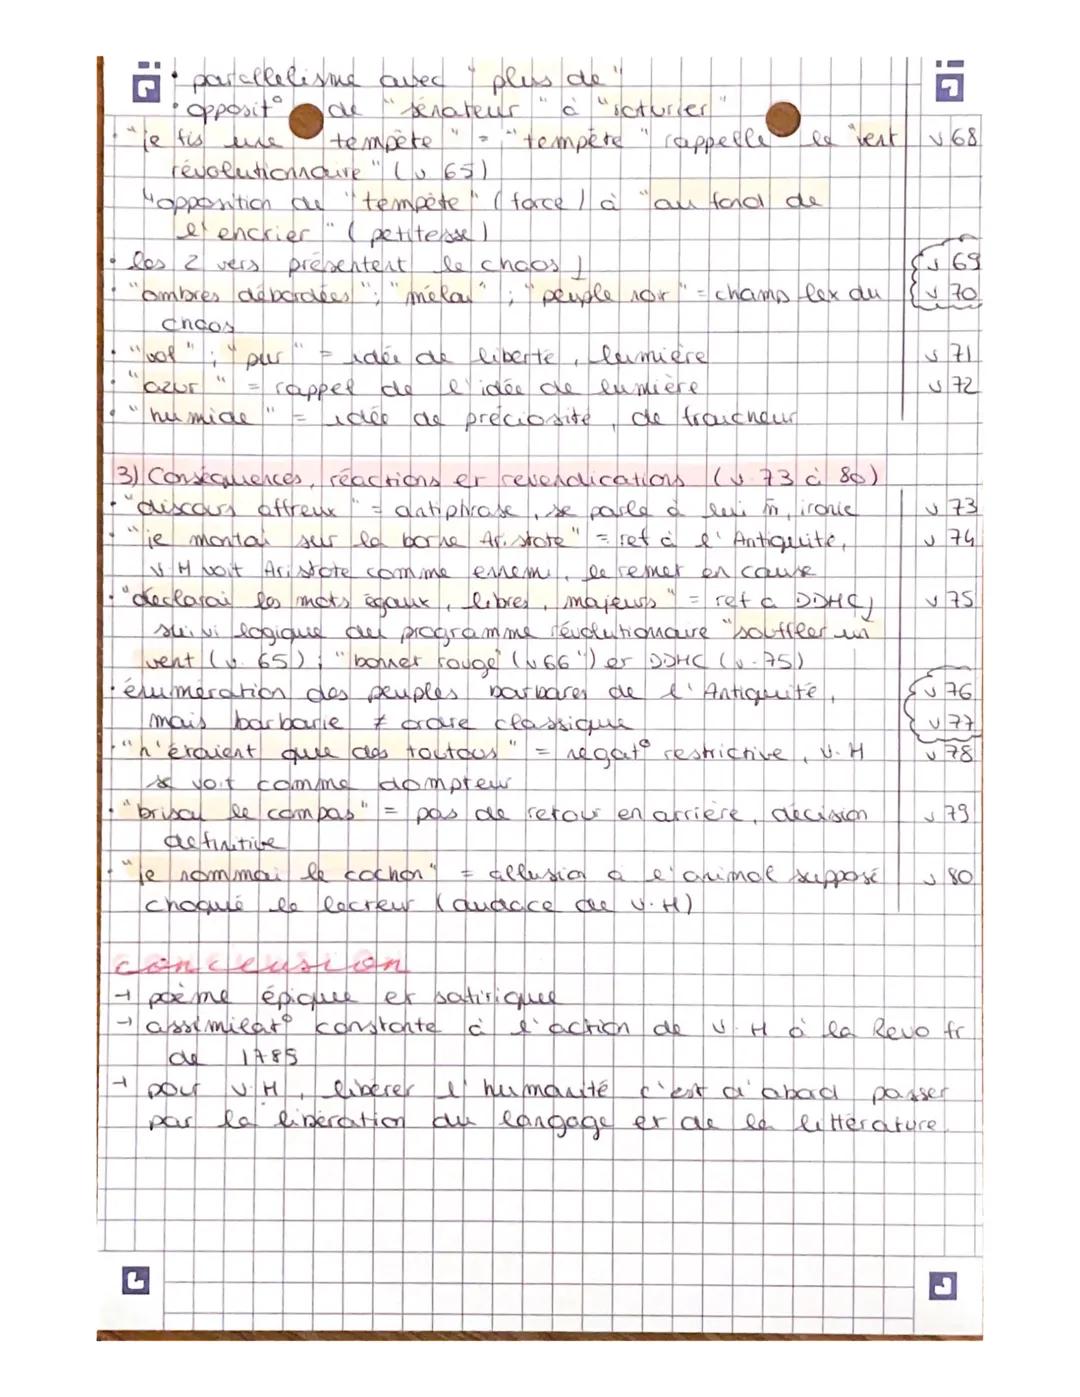 • parallélisme avec "plus de"
• opposit° de "sénateur" à "roturier"
• "je fis une tempête" = "tempête" rappelle le "vent v 68
révolutionnaire" (v 65)
↳ opposition de "tempête" (force) à "au fond de
l'encrier" (petitesse)
• les 2 vers présentent le chaos v 69
• "ombres débordées"; "mêlai"; "peuple noir" = champ lex du v 70
chaos
• "vol"; "pur" = idée de liberté, lumière v 71
• "azur" = rappel de l'idée de lumière v 72
• "humide" = idée de préciosité, de fraicheur
3) Conséquences, réactions et revendications (v. 73 à 80)
• "discours affreux" = antiphrase, se parle à lui m̂, ironie v 73
• "je montai sur la borne Aristote" = ref à l'Antiquité, v 74
V.H voit Aristote comme ennemi, le remet en cause
• "déclarai les mots égaux, libres, majeurs" = ref à DDHC, v 75
suivi logique du programme révolutionnaire "souffler un
vent (v. 65); "bonnet rouge" (v 66") et DDHC (v. 75)
• énumération des peuples barbares de l'Antiquité, v 76
mais barbarie ≠ ordre classique v 77
• "n'étaient que des toutous" = négat° restrictive, V.H v 78
se voit comme dompteur
• "brisai le compas" = pas de retour en arrière, décision v 79
définitive
• "je nommai le cochon" = allusion à l'animal supposé v 80
choqué le lecteur (audace de V.H)
conclusion
→ poème épique et satirique
→ assimilat° constante à l'action de V.H à la Revo fr
de 1789
→ pour V.H, libérer l'humanité c'est d'abord passer
par la libération du langage et de la littérature.